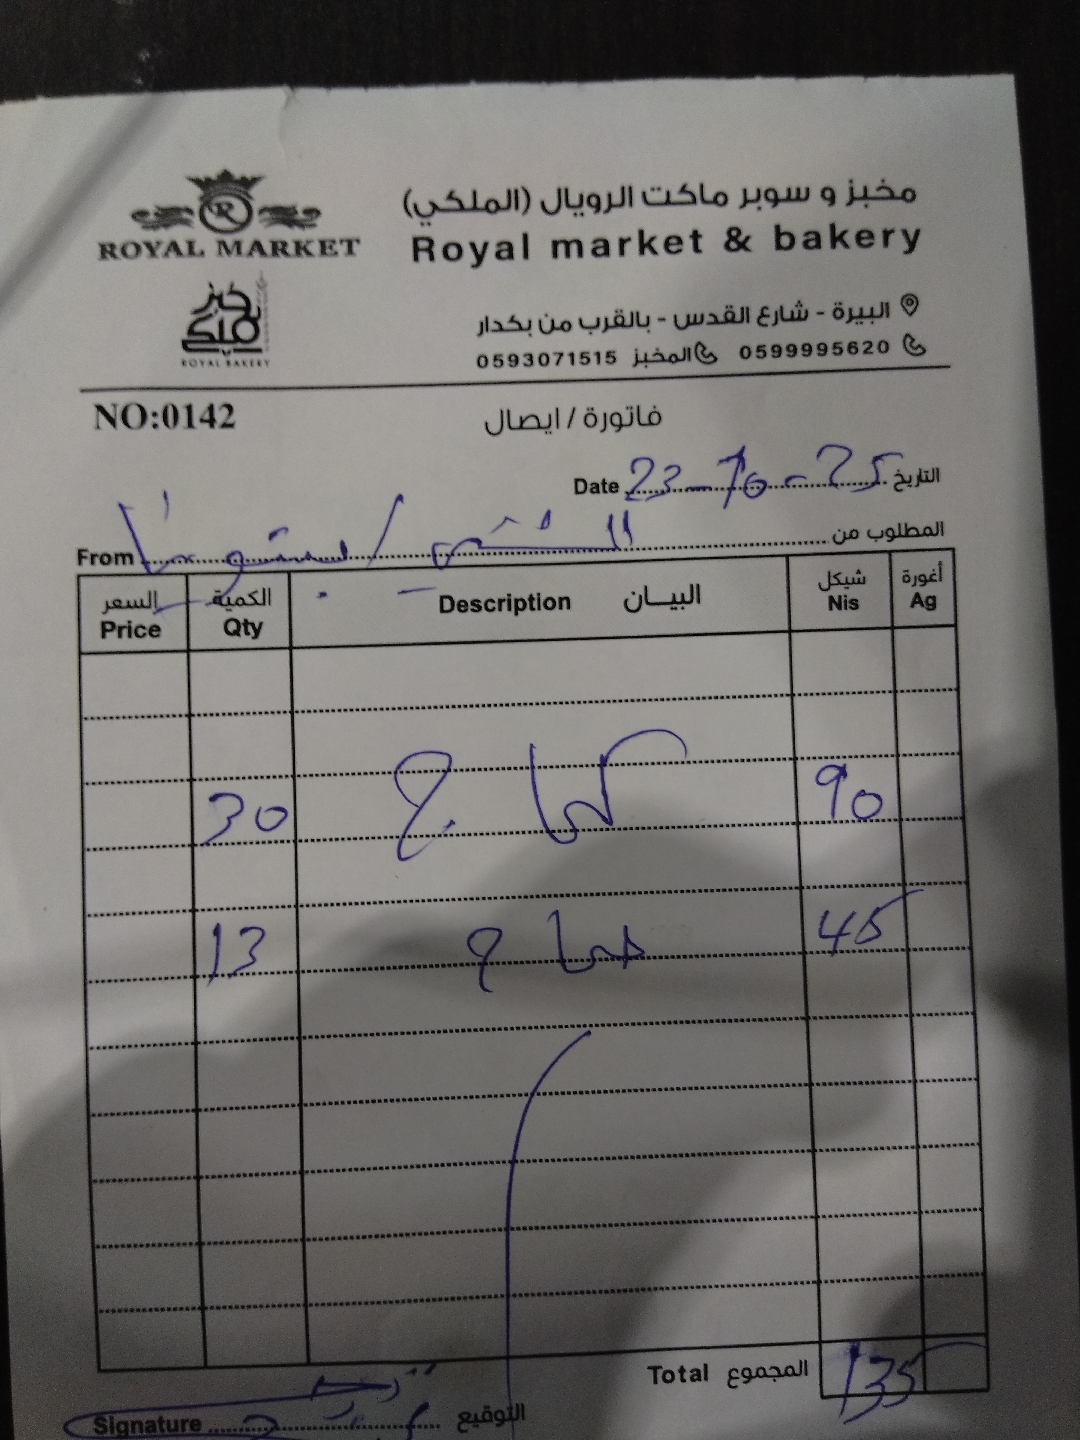 ROYAL MARKET
مخبز و سوبر ماكت الرويال (الملكي)
Royal market & bakery
خبز ملكي
ROYAL BAKERY
البيرة - شارع القدس - بالقرب من بكدار
0599995620 المخبز 0593071515
NO:0142
فاتورة / ايصال
التاريخ 23-10-25 Date
المطلوب من From
السعر الكمية البيان شيكل أغورة
Price Qty Description Nis Ag
30 كماج 90
13 45
Total المجموع 135
Signature التوقيع